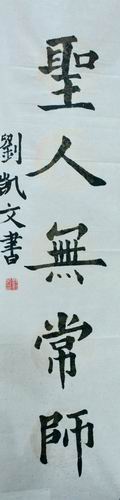 聖人無常師
劉凱文書